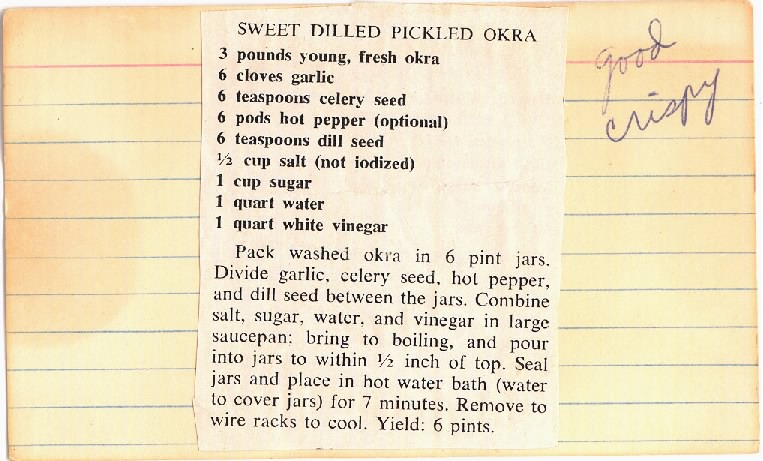 SWEET DILLED PICKLED OKRA
3 pounds young, fresh okra
6 cloves garlic
6 teaspoons celery seed
6 pods hot pepper (optional)
6 teaspoons dill seed
½ cup salt (not iodized)
1 cup sugar
1 quart water
1 quart white vinegar
Pack washed okra in 6 pint jars.
Divide garlic, celery seed, hot pepper,
and dill seed between the jars. Combine
salt, sugar, water, and vinegar in large
saucepan; bring to boiling, and pour
into jars to within ½ inch of top. Seal
jars and place in hot water bath (water
to cover jars) for 7 minutes. Remove to
wire racks to cool. Yield: 6 pints.
good
crispy